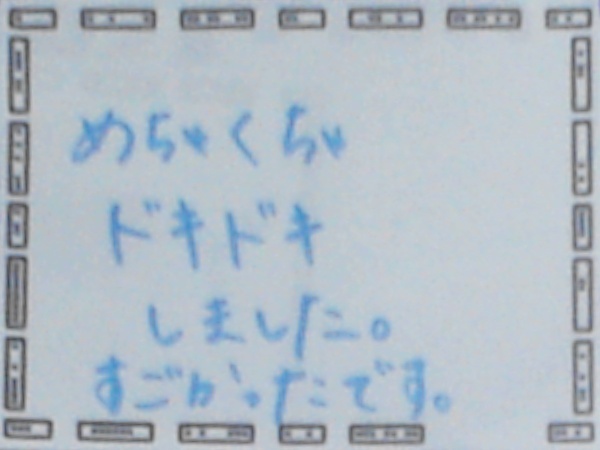 めちゃくちゃ
ドキドキ
しました。
すごかったです。